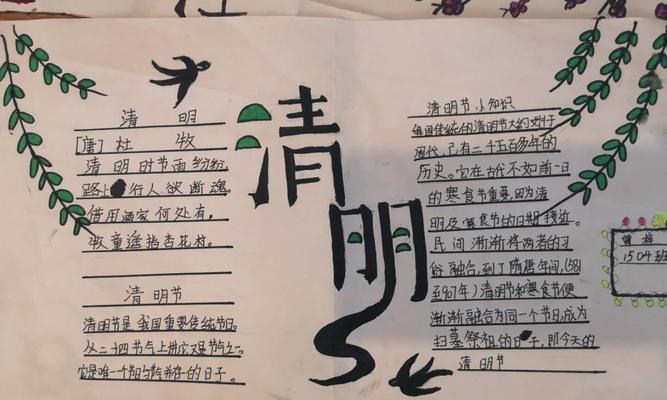 清 明
[唐] 杜 牧
清 明 时节雨纷纷,
路上 行人欲断魂。
借用酒家何处有,
牧童遥指杏花村。
清 明节
清明节是我国重要传统节日。
从二十四节气上讲它又是节气之一。
它是唯一个节日与节气并存的日子。
清明
清明节小知识
我国传统的清明节大约始于
周代,已有二千五百多年的
历史。它在古代不如前一日
的寒食节重要,因为清
明及寒食节的日期接近。
民间渐渐将两者的习
俗融合,到了隋唐年间,(581
至907年)清明节和寒食节便
渐渐融合为同一个节日,成为
扫墓祭祖的日子,即今天的
清明节
1504班